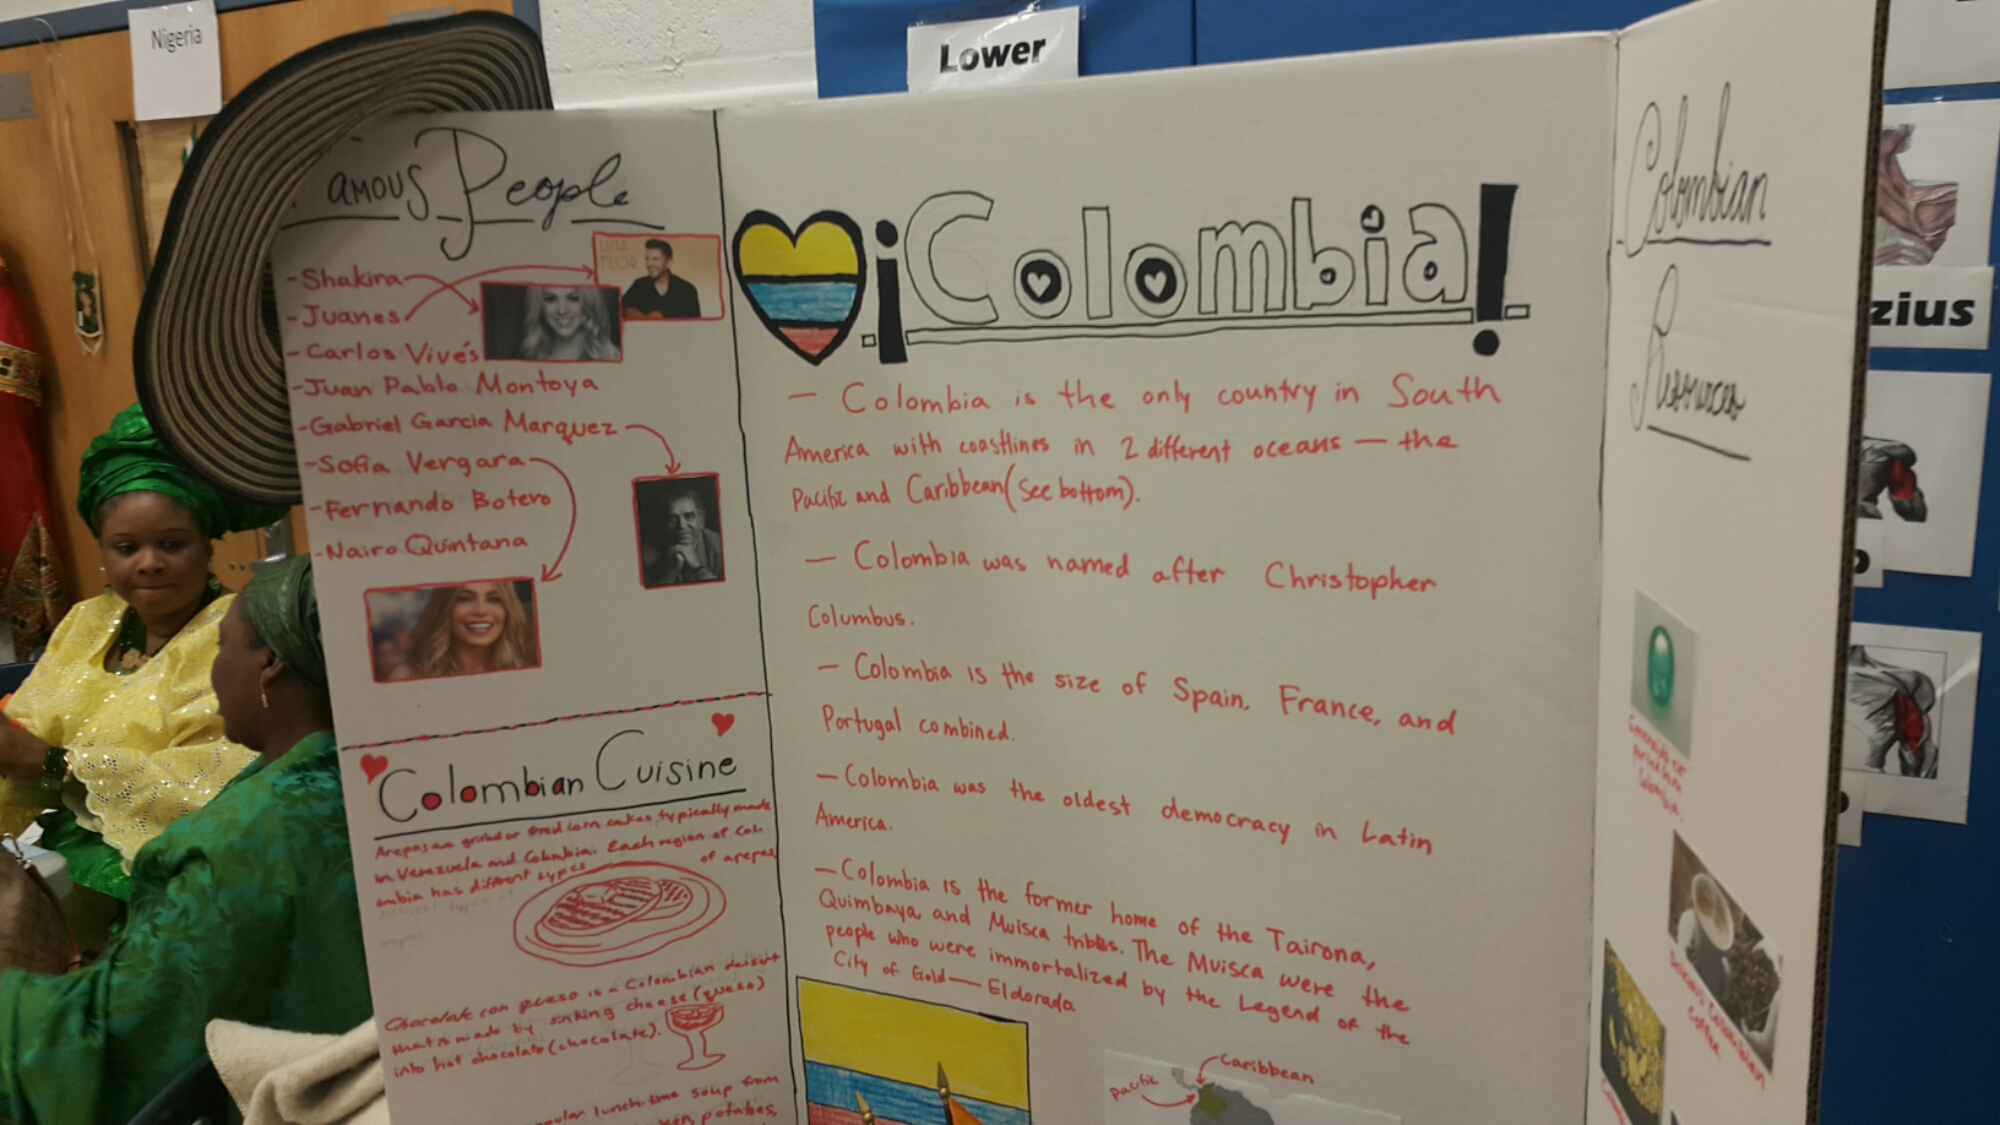 Nigeria
Lower
Famous People
- Shakira
- Juanes
- Carlos Vivés
- Juan Pablo Montoya
- Gabriel Garcia Marquez
- Sofia Vergara
- Fernando Botero
- Nairo Quintana
Colombian Cuisine
Arepas are grilled or fried corn cakes, typically made
in Venezuela and Colombia. Each region of Col-
ombia has different types
of arepas.
Chocolate con queso is a Colombian dessert
that is made by sinking cheese (queso)
into hot chocolate (chocolate).
lunch-time soup from
potatoes,
¡Colombia!
— Colombia is the only country in South
America with coastlines in 2 different oceans — the
Pacific and Caribbean (see bottom).
— Colombia was named after Christopher
Columbus.
— Colombia is the size of Spain, France, and
Portugal combined.
— Colombia was the oldest democracy in Latin
America.
— Colombia is the former home of the Tairona,
Quimbaya, and Muisca tribes. The Muisca were the
people who were immortalized by the Legend of the
City of Gold — Eldorada
Pacific
Caribbean
Colombian
Resources
Delicious Colombian
Coffee
zius